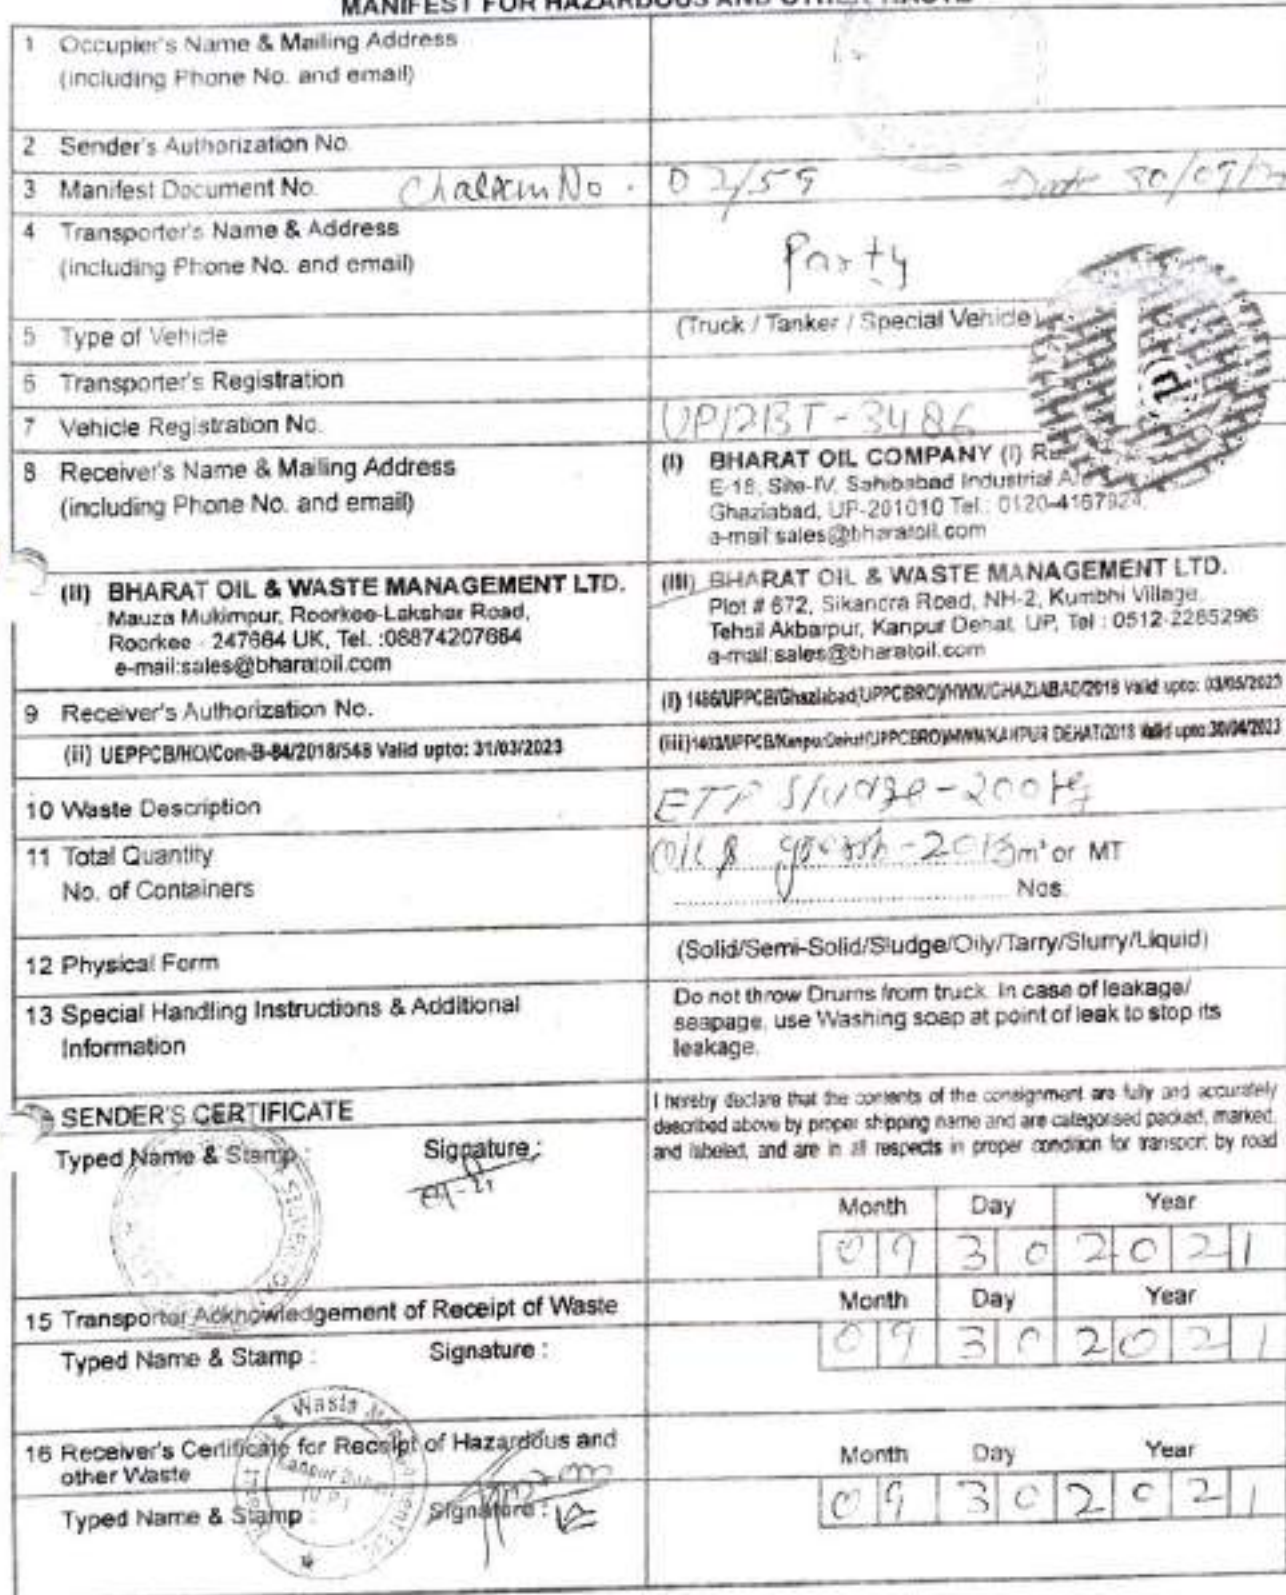 MANIFEST FOR HAZARDOUS AND OTHER WASTE
1 Occupier's Name & Mailing Address
(including Phone No. and email)
2 Sender's Authorization No.
3 Manifest Document No. Challan No. 02/59 Date 30/09/
4 Transporter's Name & Address
(including Phone No. and email)
Party
5 Type of Vehicle (Truck / Tanker / Special Vehicle)
6 Transporter's Registration
7 Vehicle Registration No. UP12BT-3486
8 Receiver's Name & Mailing Address
(including Phone No. and email)
(I) BHARAT OIL COMPANY (I)
E-18, Site-IV, Sahibabad Industrial
Ghaziabad, UP-201010 Tel.: 0120-4167924,
e-mail:sales@bharatoil.com
(II) BHARAT OIL & WASTE MANAGEMENT LTD.
Mauza Mukimpur, Roorkee-Lakshar Road,
Roorkee - 247664 UK, Tel. :08874207664
e-mail:sales@bharatoil.com
(III) BHARAT OIL & WASTE MANAGEMENT LTD.
Plot # 672, Sikandra Road, NH-2, Kumbhi Village,
Tehsil Akbarpur, Kanpur Dehat, UP, Tel : 0512-2285296
e-mail:sales@bharatoil.com
9 Receiver's Authorization No.
(i) 1486/UPPCB/Ghaziabad(UPPCBRO)/HWM/GHAZIABAD/2018 Valid upto: 03/05/2023
(ii) UEPPCB/HO/Con-B-84/2018/548 Valid upto: 31/03/2023
(iii) 1403/UPPCB/KanpurDehat(UPPCBRO)/HWM/KANPUR DEHAT/2018 Valid upto:30/04/2023
10 Waste Description ETP Sludge-200kg
11 Total Quantity m³ or MT
No. of Containers Nos.
12 Physical Form (Solid/Semi-Solid/Sludge/Oily/Tarry/Slurry/Liquid)
13 Special Handling Instructions & Additional
Information
Do not throw Drums from truck. In case of leakage/
seapage, use Washing soap at point of leak to stop its
leakage.
SENDER'S CERTIFICATE
Typed Name & Stamp : Signature :
I hereby declare that the contents of the consignment are fully and accurately
described above by proper shipping name and are categorised packed, marked,
and labeled, and are in all respects in proper condition for transport by road
Month Day Year
09 30 2021
15 Transporter Acknowledgement of Receipt of Waste
Month Day Year
09 30 2021
Typed Name & Stamp : Signature :
16 Receiver's Certificate for Receipt of Hazardous and
other Waste
Month Day Year
09 30 2021
Typed Name & Stamp : Signature :